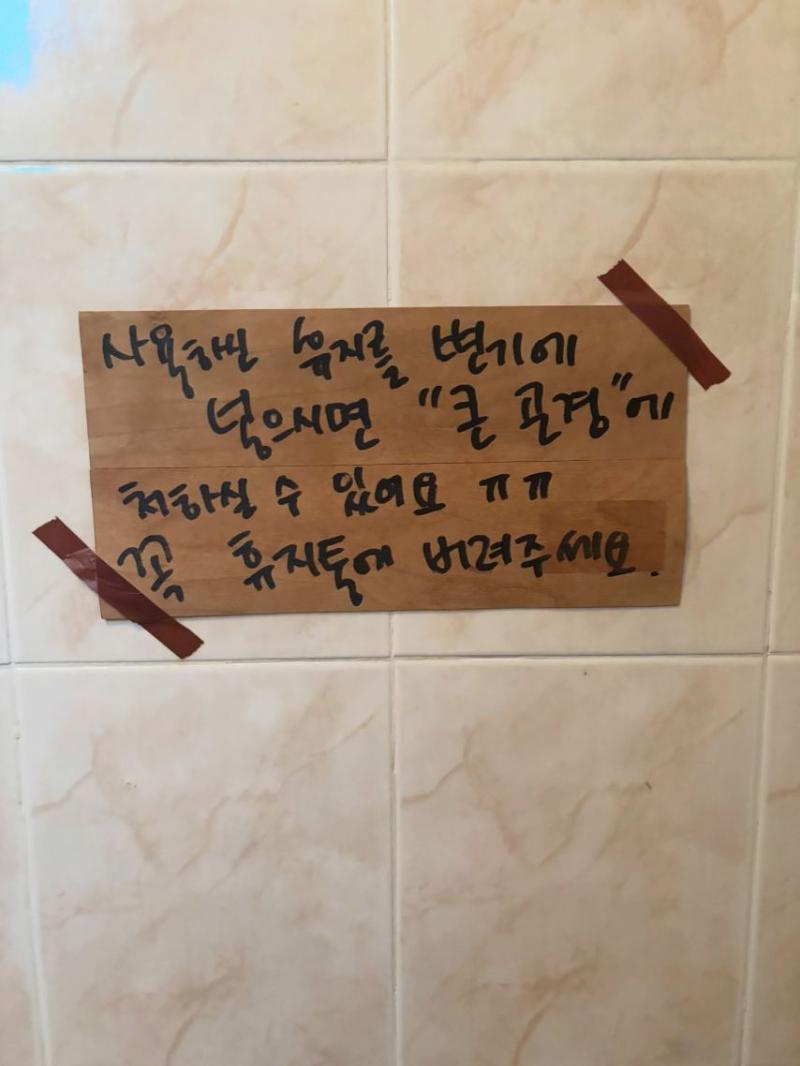 사용하신 휴지를 변기에
넣으시면 "큰 곤경"에
처하실 수 있어요 ㅠㅠ
꼭 휴지통에 버려주세요.